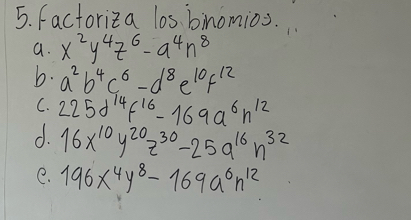 5. Factoriza los binomios.
a. x²y⁴z⁶ - a⁴n⁸
b. a²b⁴c⁶ - d⁸e¹⁰f¹²
c. 225d¹⁴f¹⁶ - 169a⁶n¹²
d. 16x¹⁰y²⁰z³⁰ - 25a¹⁶n³²
e. 196x⁴y⁸ - 169a⁶n¹²